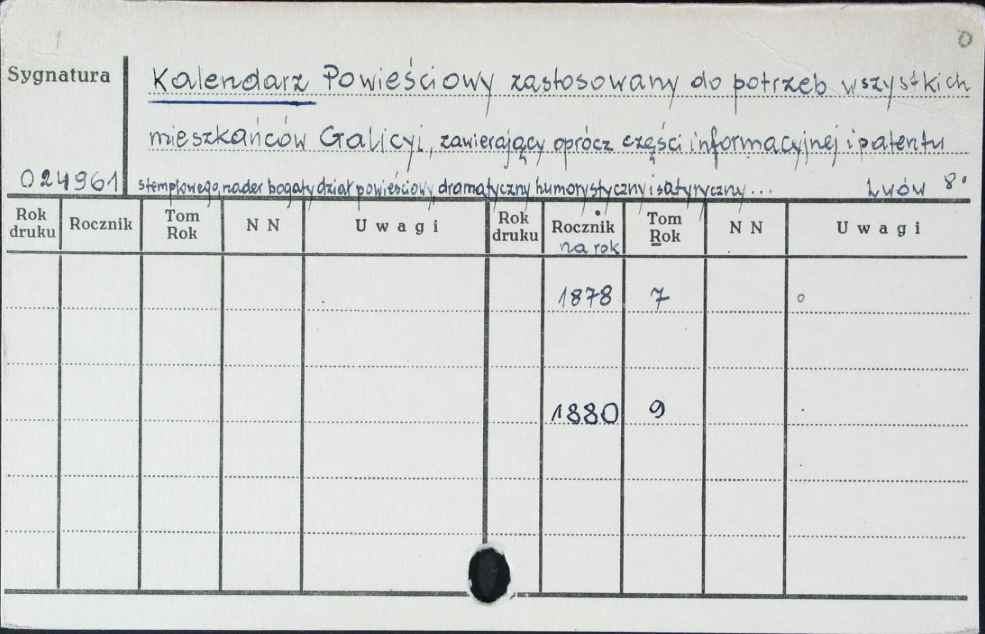 0
Sygnatura
Kalendarz Powieściowy zastosowany do potrzeb wszystkich
mieszkańców Galicyi, zawierający oprócz części informacyjnej i patentu
024961 stemplowego, nader bogaty dział powieściowy, dramatyczny humorystyczny i satyryczny... Lwów 8°
Rok druku Rocznik Tom Rok N N Uwagi Rok druku Rocznik na rok Tom Rok N N Uwagi
1878 7 o
1880 9